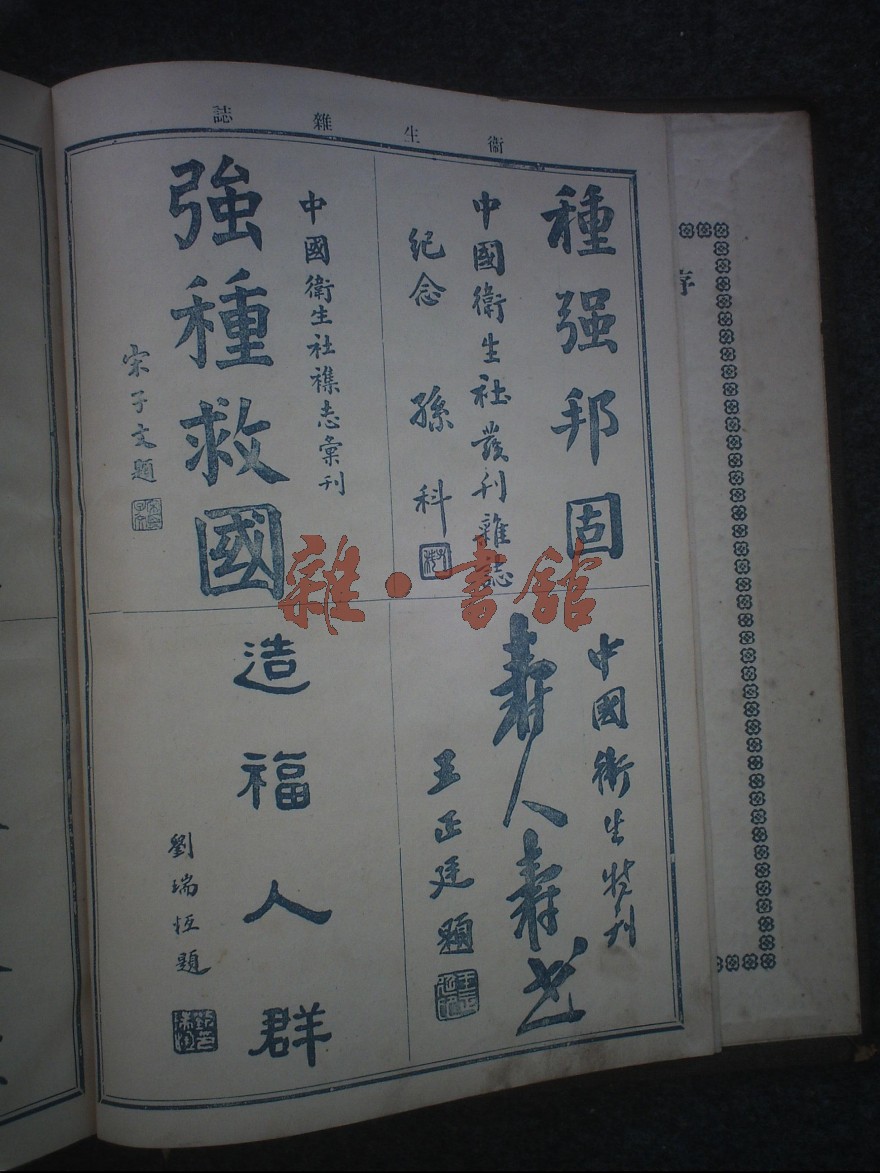 衞生雜誌
種强邦固
中國衛生社發刊雜誌
紀念 孫科
強種救國
中國衛生社襍志彙刊
宋子文題
中國衛生特刊
壽人壽世
王正廷題
造福人群
劉瑞恆題
序
雜·書館